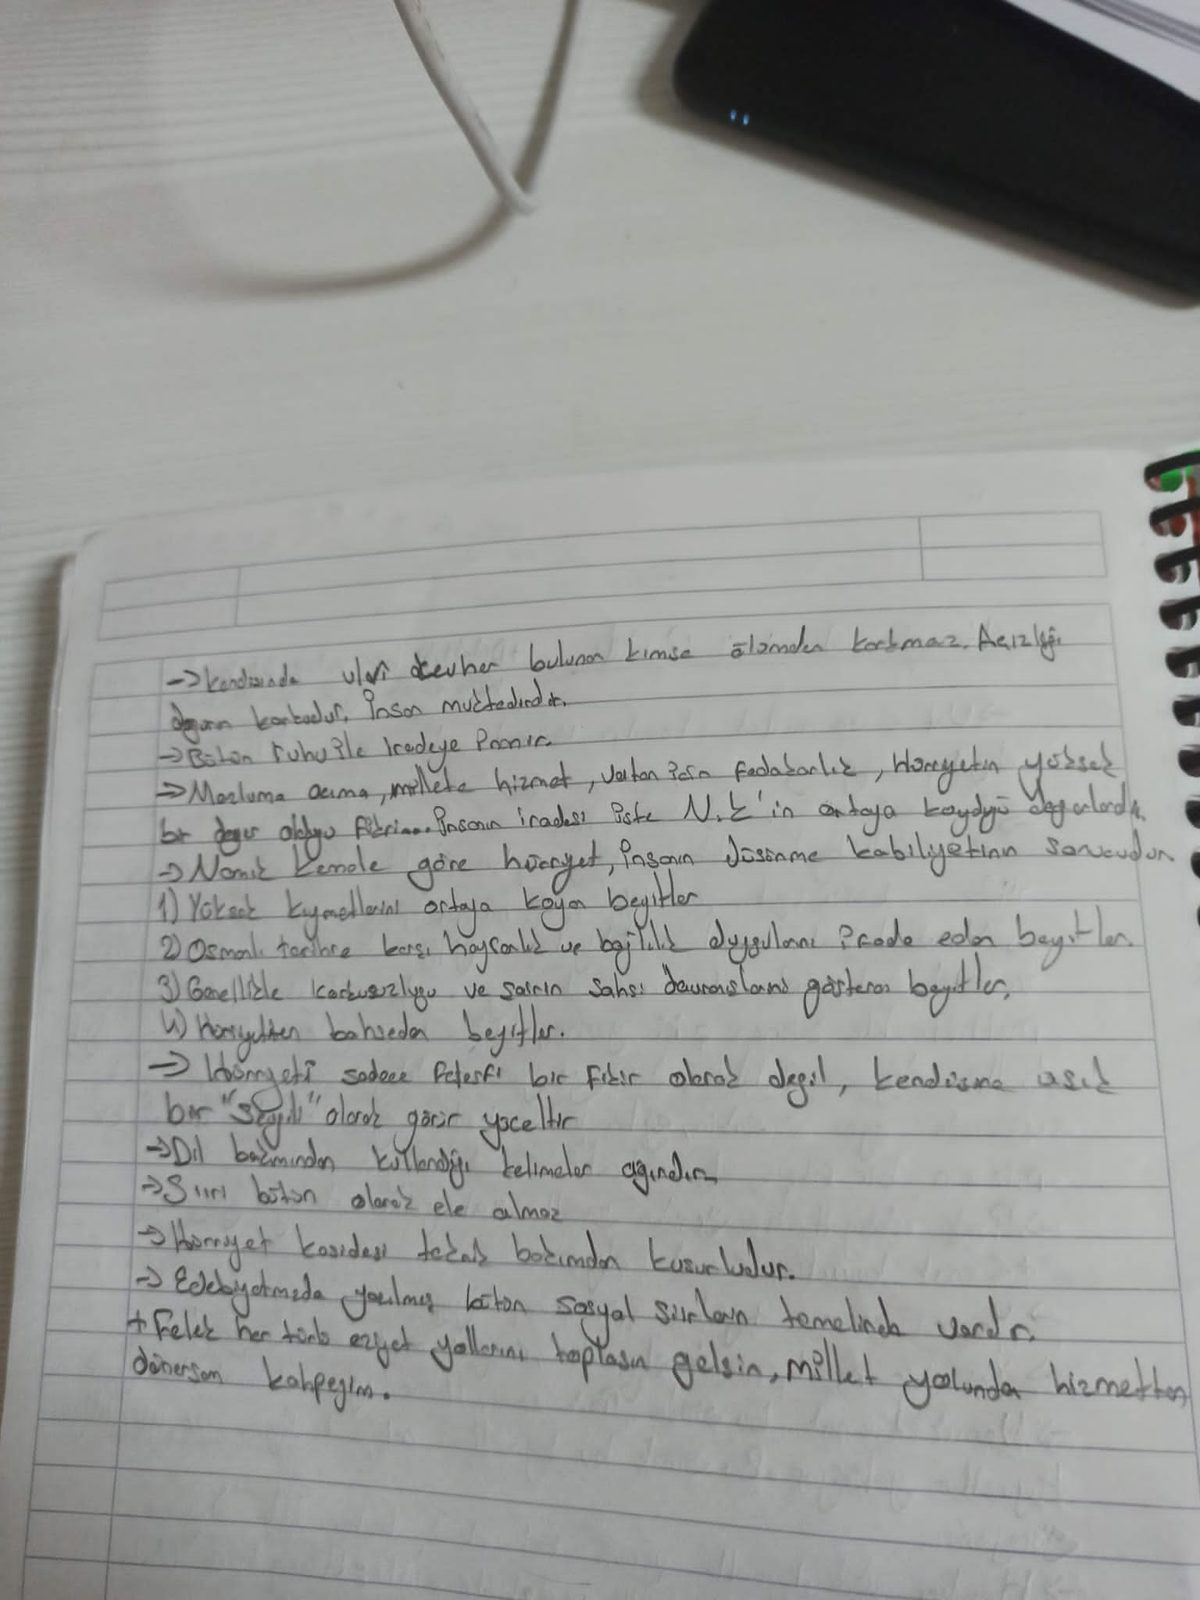 → Kendisinde ulvi cevher bulunan kimse ölümden korkmaz. Acizliği
doguran korkudur. İnsan muktedirdir.
→ Bütün ruhu ile iradeye inanır.
→ Mazluma acıma, millete hizmet, vatan için fedakarlık, Hürriyetin yüksek
bir deger oldugu fikri... İnsanın iradesi işte N.K'in ortaya koyduğu degerlerdir.
→ Namık Kemale göre hürriyet, insanın düşünme kabiliyetinin sonucudur
1) Yüksek kıymetlerini ortaya koyan beyitler
2) Osmanlı tarihine karşı hayranlık ve bağlılık duygularını ifade eden beyitler.
3) Genellikle korkusuzluğu ve sairin sahsi davranıslarını gösteren beyitler.
4) Hürriyetten bahseden beyitler.
→ Hürriyeti sadece felsefi bir fikir olarak degil, kendisine asık
bir "sevgili" olarak görür yüceltir
→ Dil bakımından kullandığı kelimeler agırdır.
→ Siiri bütün olarak ele almaz
→ Hürriyet kasidesi teknik bakımdan kusurludur.
→ Edebiyatımızda yazılmış bütün sosyal siirlerin temelinde vardır.
+ Felek her türlü eziyet yollarını toplasın gelsin, millet yolunda hizmetten
dönersem kahpeyim.